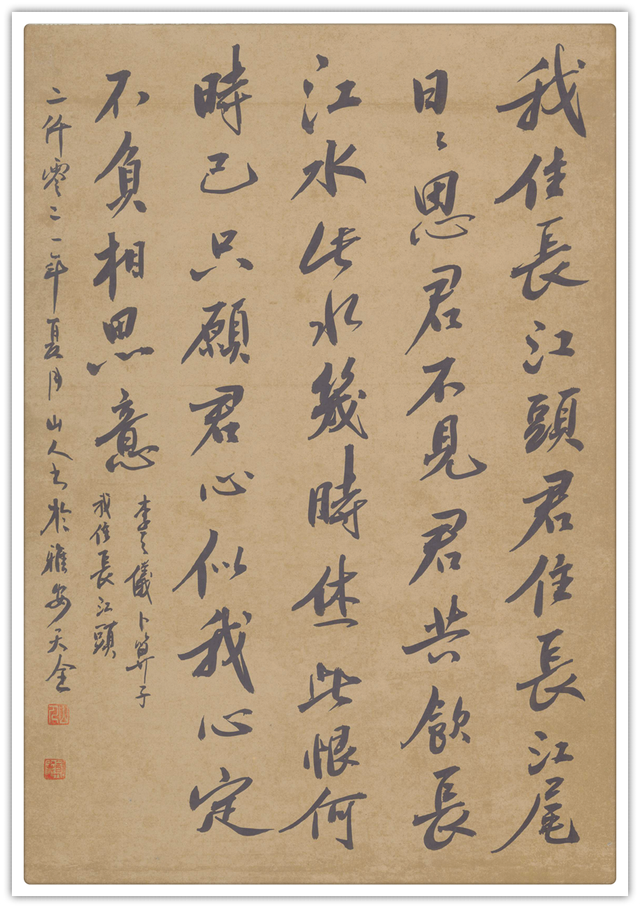 我住長江頭君住長江尾
日々思君不見君共飲長
江水此水幾時休此恨何
時已只願君心似我心定
不負相思意
李之儀卜算子
我住長江頭
二仟零二一年夏月山人書於雅安天全